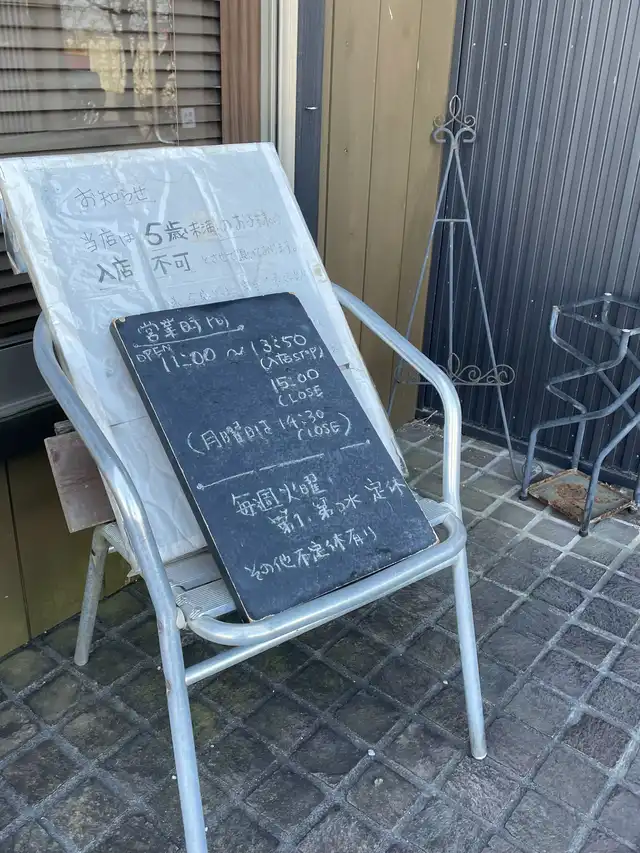 お知らせ
当店は 5歳未満のお子様の
入店 不可 とさせて
営業時間
OPEN 11:00 〜 13:50
(入店STOP)
15:00
CLOSE
(月曜日は 14:30
CLOSE)
毎週火曜
第1、第3水 定休
その他不定休有り